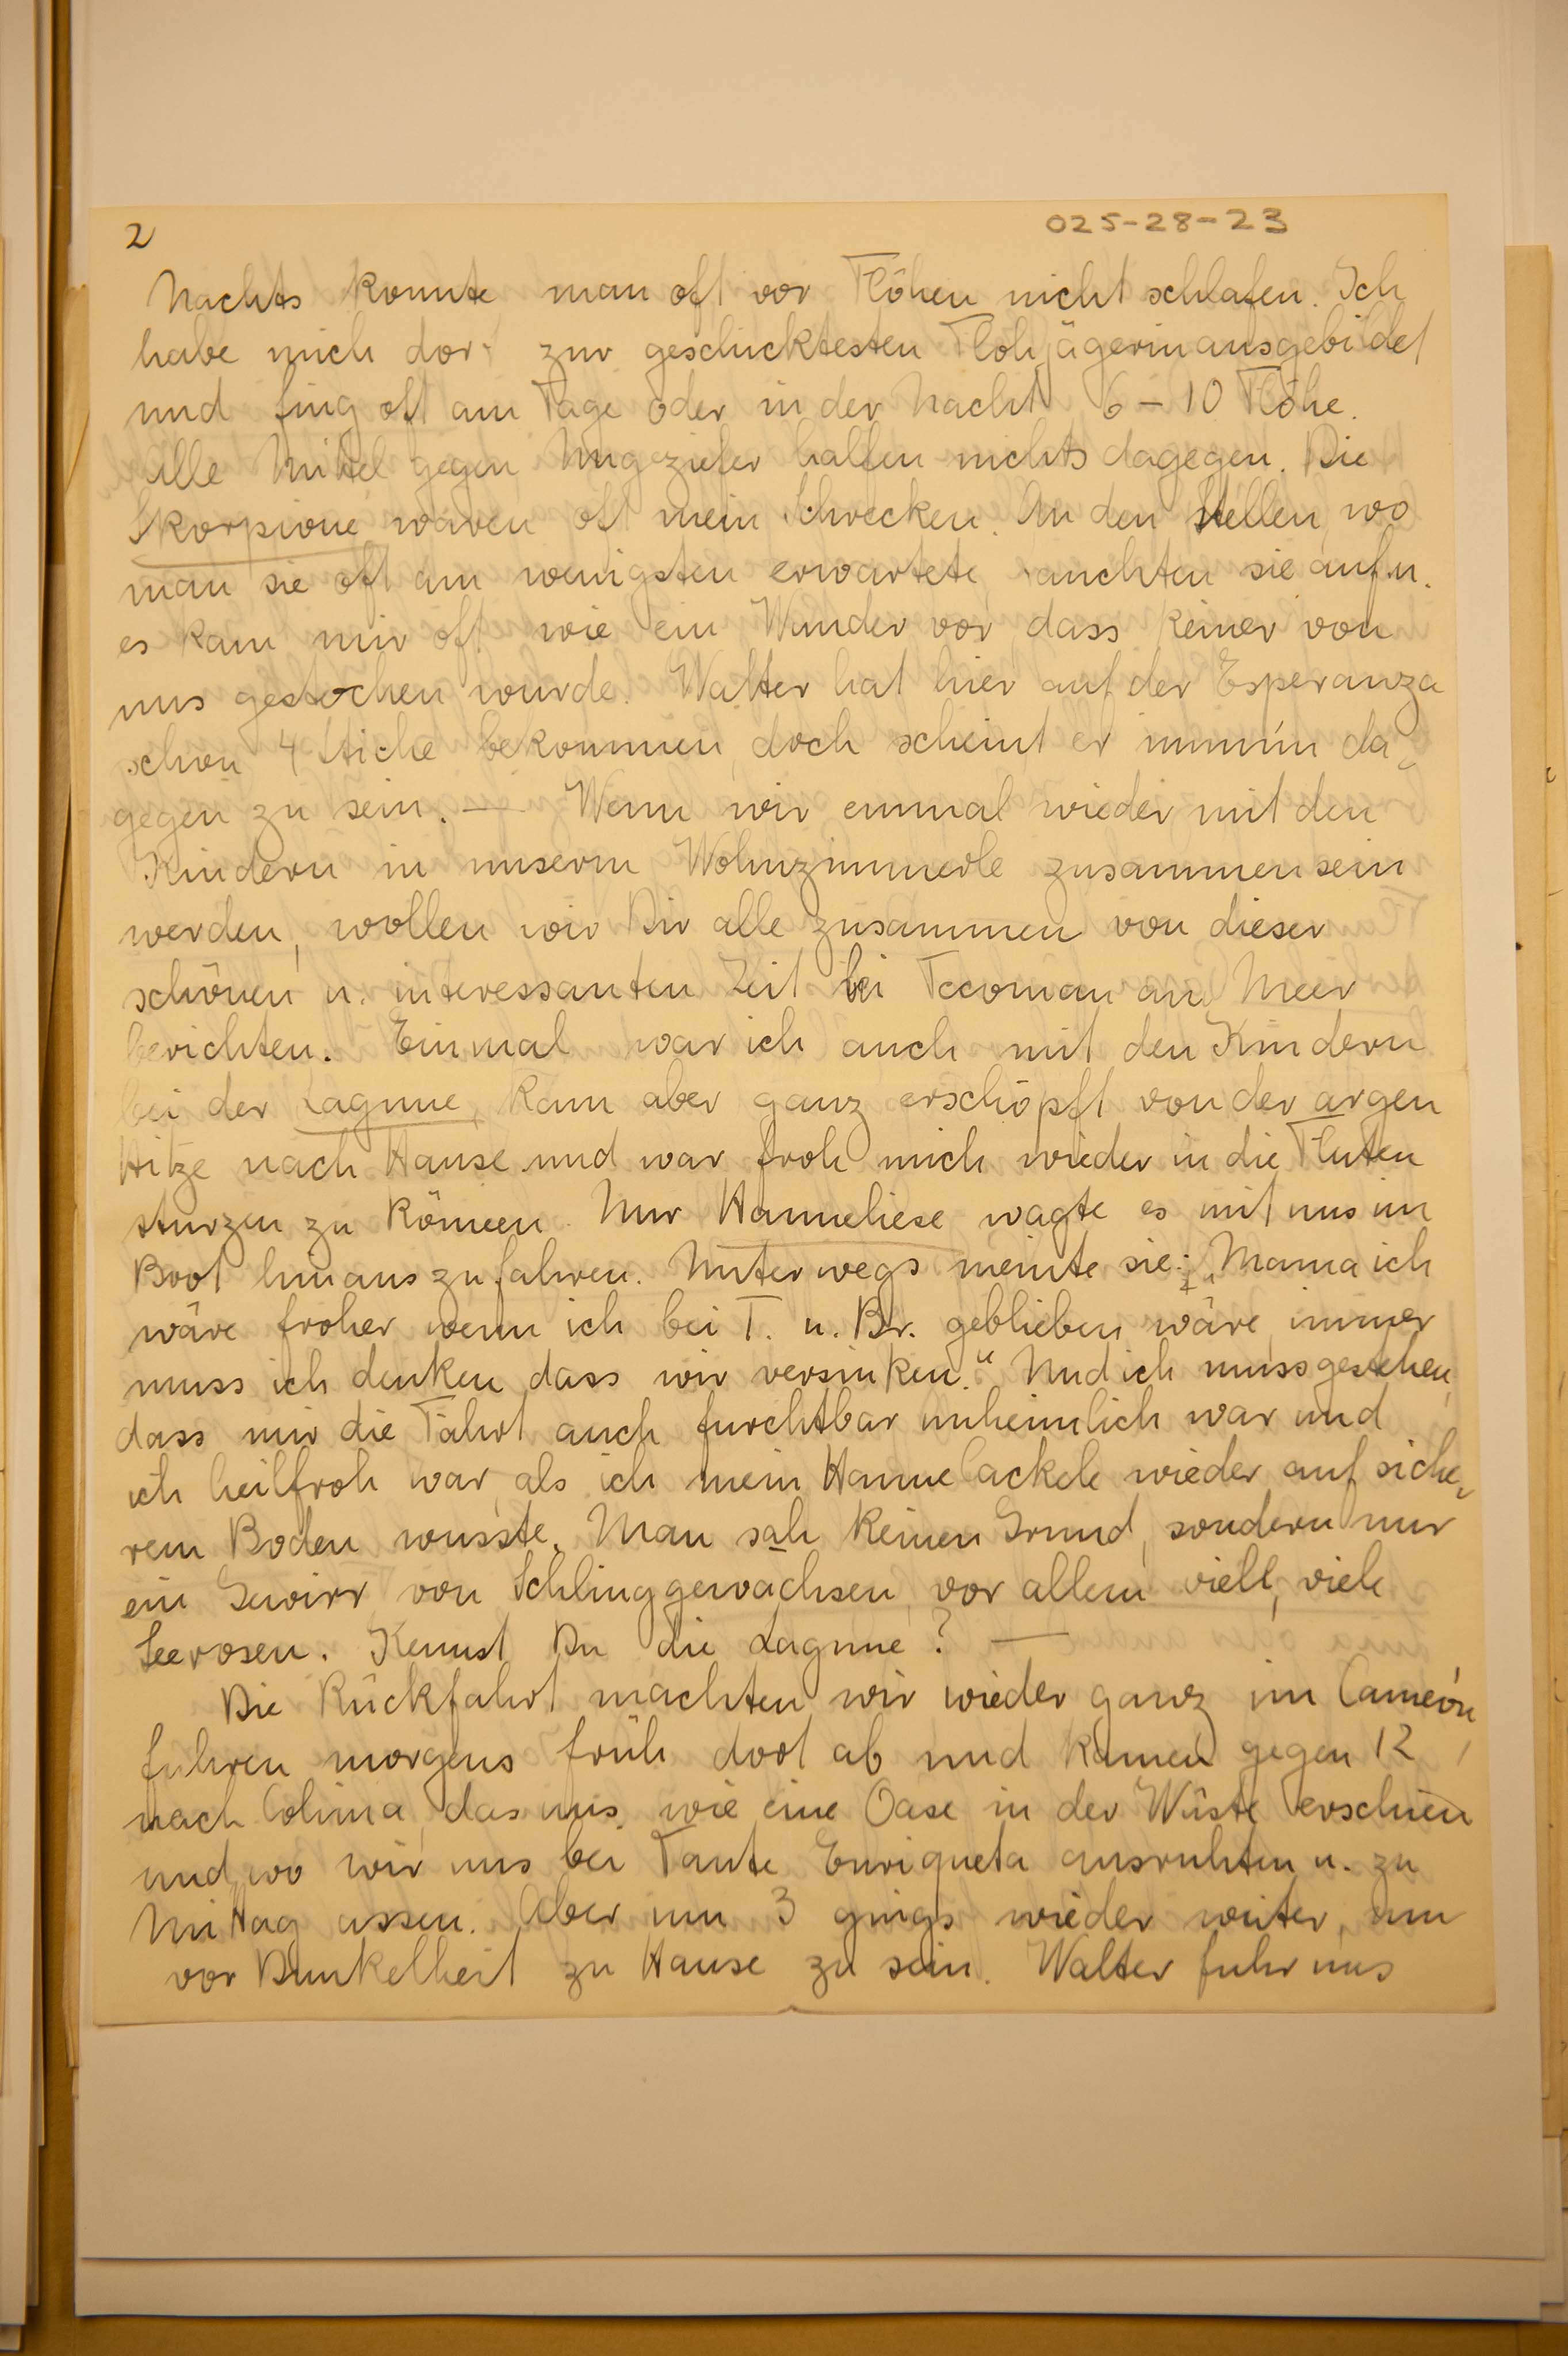 2
025-28-23
Nachts konnte man oft vor Flöhen nicht schlafen. Ich
habe mich dort zur geschicktesten Flohjägerin ausgebildet
und fing oft am Tage oder in der Nacht 6 – 10 Flöhe.
Alle Mittel gegen Ungeziefer halfen nichts dagegen. Die
Skorpione waren oft mein Schrecken. An den Stellen, wo
man sie oft am wenigsten erwartete, tauchten sie auf u.
es kam mir oft wie ein Wunder vor, dass keiner von
uns gestochen wurde. Walter hat hier auf der Esperanza
schon 4 Stiche bekommen, doch scheint er immun da-
gegen zu sein. — Wenn wir einmal wieder mit den
Kindern in unserm Wohnzimmerle zusammen sein
werden, wollen wir Dir alle zusammen von dieser
schönen u. interessanten Zeit bei Tecoman am Meer
berichten. Einmal war ich auch mit den Kindern
bei der Lagune, kam aber ganz erschöpft von der argen
Hitze nach Hause und war froh mich wieder in die Fluten
stürzen zu können. Nur Hanneliese wagte es mit uns im
Boot hinaus zu fahren. Unterwegs meinte sie: „Mama ich
wäre froher wenn ich bei T. u. Br. geblieben wäre, immer
muss ich denken, dass wir versinken." Und ich muss gestehen,
dass mir die Fahrt auch furchtbar unheimlich war und
ich heilfroh war, als ich mein Hannelackele wieder auf siche-
rem Boden wusste. Man sah keinen Grund, sondern nur
ein Gewirr von Schlinggewächsen, vor allem viele, viele
Seerosen. Kennst Du die Lagune? —
Die Rückfahrt machten wir wieder ganz im Cameón,
fuhren morgens früh dort ab und kamen gegen 12
nach Colima, das uns wie eine Oase in der Wüste erschien
und wo wir uns bei Tante Enriqueta ausruhten u. zu
Mittag assen. Aber um 3 gings wieder weiter, um
vor Dunkelheit zu Hause zu sein. Walter fuhr uns